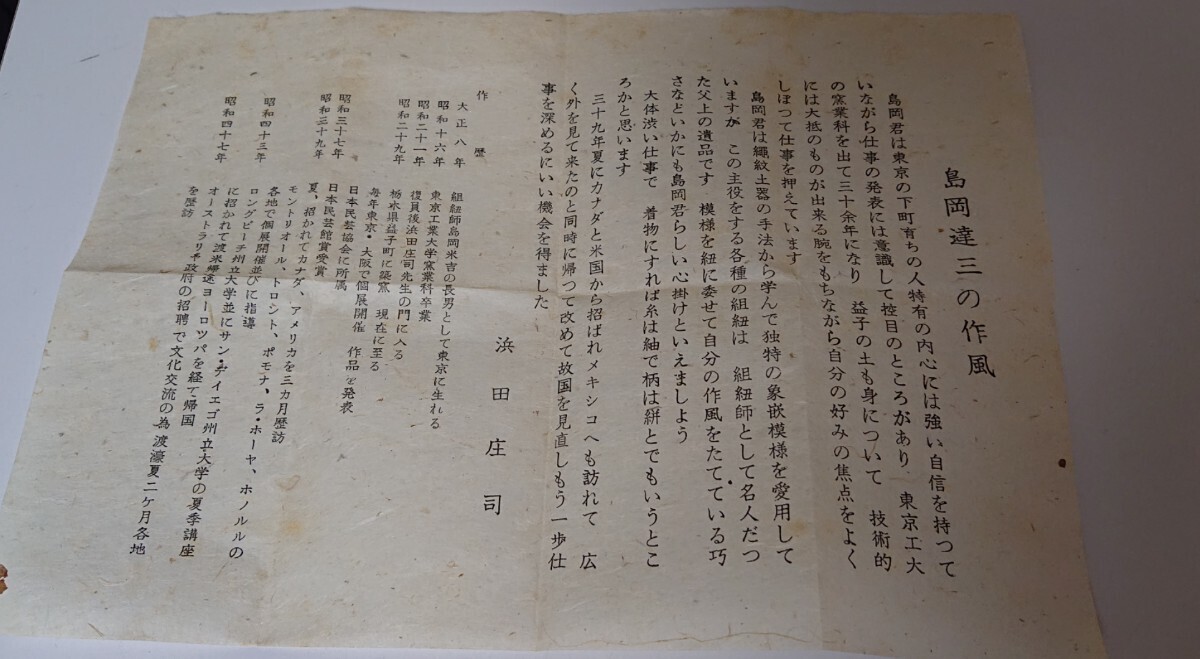 島岡達三の作風
島岡君は東京の下町育ちの人特有の内心には強い自信を持つて
いながら仕事の発表には意識して控目のところがあり 東京工大
の窯業科を出て三十余年になり 益子の土も身について 技術的
には大抵のものが出来る腕をもちながら自分の好みの焦点をよく
しぼつて仕事を押えています
島岡君は縄紋土器の手法から学んで独特の象嵌模様を愛用して
いますが この主役をする各種の組紐は 組紐師として名人だつ
た父上の遺品です 模様を紐に委せて自分の作風をたてている巧
さなどいかにも島岡君らしい心掛けといえましよう
大体渋い仕事で 着物にすれば糸は紬で柄は絣とでもいうとこ
ろかと思います
三十九年夏にカナダと米国から招ばれメキシコへも訪れて 広
く外を見て来たのと同時に帰つて改めて故国を見直しもう一歩仕
事を深めるにいい機会を得ました
浜田庄司
作歴
大正八年 組紐師島岡米吉の長男として東京に生れる
昭和十六年 東京工業大学窯業科卒業
昭和二十一年 復員後浜田庄司先生の門に入る
昭和二十九年 栃木県益子町に築窯 現在に至る
毎年東京・大阪で個展開催 作品を発表
日本民芸協会に所属
昭和三十七年 日本民芸館賞受賞
昭和三十九年 夏、招かれてカナダ、アメリカを三カ月歴訪
モントリオール、トロント、ポモナ、ラ・ホーヤ、ホノルルの
各地で個展開催並びに指導
昭和四十三年 ロングビーチ州立大学並にサン・ディエゴ州立大学の夏季講座
に招かれて渡米帰途ヨーロッパを経て帰国
昭和四十七年 オーストラリヤ政府の招聘で文化交流の為渡濠夏二ケ月各地
を歴訪